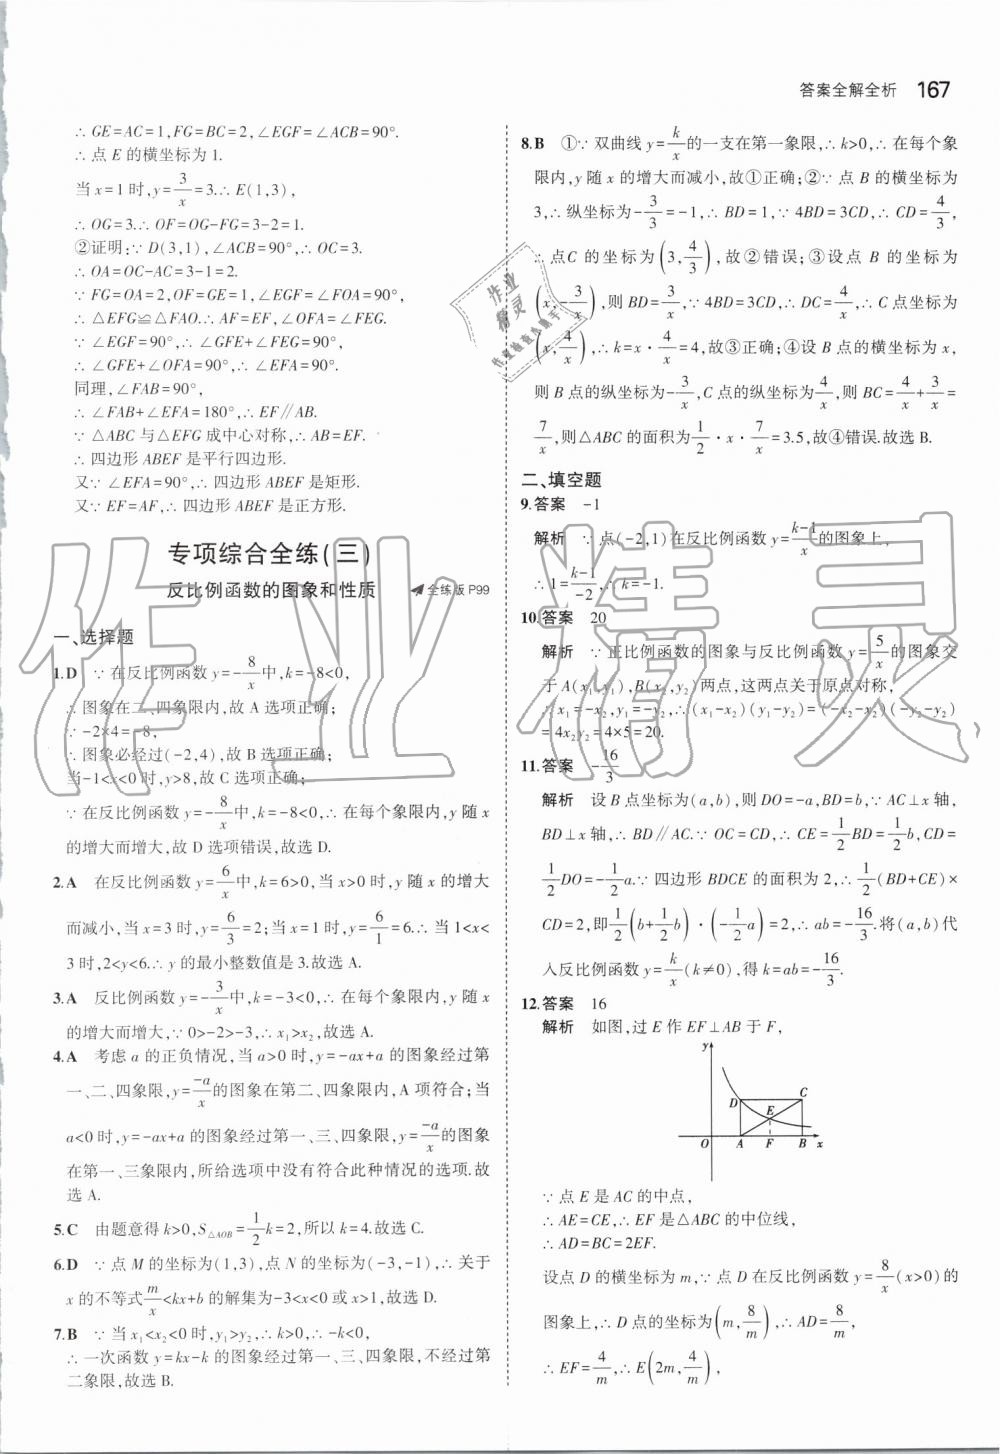 答案全解全析 167
∴GE=AC=1,FG=BC=2,∠EGF=∠ACB=90°.
∴点E的横坐标为1.
当x=1时,y=3/x=3.∴E(1,3),
∴OG=3.∴OF=OG-FG=3-2=1.
②证明:∵D(3,1),∠ACB=90°,∴OC=3.
∴OA=OC-AC=3-1=2.
∵FG=OA=2,OF=GE=1,∠EGF=∠FOA=90°,
∴△EFG≌△FAO.∴AF=EF,∠OFA=∠FEG.
∵∠EGF=90°,∴∠GFE+∠FEG=90°.
∴∠GFE+∠OFA=90°.∴∠EFA=90°.
同理,∠FAB=90°,
∴∠FAB+∠EFA=180°,∴EF∥AB.
∵△ABC与△EFG成中心对称,∴AB=EF.
∴四边形ABEF是平行四边形.
又∵∠EFA=90°,∴四边形ABEF是矩形.
又∵EF=AF,∴四边形ABEF是正方形.
专项综合全练(三)
反比例函数的图象和性质 全练版P99
一、选择题
1.D ∵在反比例函数y=-8/x中,k=-8<0,
∴图象在二、四象限内,故A选项正确;
∵-2×4=-8,
∴图象必经过(-2,4),故B选项正确;
当-1<x<0时,y>8,故C选项正确;
∵在反比例函数y=-8/x中,k=-8<0,∴在每个象限内,y随x
的增大而增大,故D选项错误,故选D.
2.A 在反比例函数y=6/x中,k=6>0,当x>0时,y随x的增大
而减小,当x=3时,y=6/3=2;当x=1时,y=6/1=6.∴当1<x<
3时,2<y<6.∴y的最小整数值是3.故选A.
3.A 反比例函数y=-3/x中,k=-3<0,∴在每个象限内,y随x
的增大而增大,∵0>-2>-3,∴x₁>x₂,故选A.
4.A 考虑a的正负情况,当a>0时,y=-ax+a的图象经过第
一、二、四象限,y=-a/x的图象在第二、四象限,A项符合;当
a<0时,y=-ax+a的图象经过第一、三、四象限,y=-a/x的图象
在第一、三象限内,所给选项中没有符合此种情况的选项.故
选A.
5.C 由题意得k>0,S△AOB=1/2k=2,所以k=4.故选C.
6.D ∵点M的坐标为(1,3),点N的坐标为(-3,-1),∴关于
x的不等式m/x<kx+b的解集为-3<x<0或x>1,故选D.
7.B ∵当x₁<x₂<0时,y₁>y₂,∴k>0,∴-k<0,
∴一次函数y=kx-k的图象经过第一、三、四象限,不经过第
二象限,故选B.
8.B ①∵双曲线y=k/x的一支在第一象限,∴k>0,∴在每个象
限内,y随x的增大而减小,故①正确;②∵点B的横坐标为
3,∴纵坐标为-3/3=-1,∴BD=1,∵4BD=3CD,∴CD=4/3,
∴点C的坐标为(3,4/3),故②错误;③设点B的坐标为
(x,-3/x),则BD=3/x,∵4BD=3CD,∴DC=4/x,∴C点坐标为
(x,4/x),∴k=x·4/x=4,故③正确;④设B点的横坐标为x,
则B点的纵坐标为-3/x,C点的纵坐标为4/x,则BC=4/x+3/x=
7/x,则△ABC的面积为1/2·x·7/x=3.5,故④错误.故选B.
二、填空题
9.答案 -1
解析 ∵点(-2,1)在反比例函数y=k-1/x的图象上,
∴1=k-1/-2,∴k=-1.
10.答案 20
解析 ∵正比例函数的图象与反比例函数y=5/x的图象交
于A(x₁,y₁),B(x₂,y₂)两点,这两点关于原点对称,
∴x₁=-x₂,y₁=-y₂,∴(x₁-x₂)(y₁-y₂)=(-x₂-x₂)(-y₂-y₂)
=4x₂y₂=4×5=20.
11.答案 -16/3
解析 设B点坐标为(a,b),则DO=-a,BD=b,∵AC⊥x轴,
BD⊥x轴,∴BD∥AC.∵OC=CD,∴CE=1/2BD=1/2b,CD=
1/2DO=-1/2a.∵四边形BDCE的面积为2,∴1/2(BD+CE)×
CD=2,即1/2(b+1/2b)·(-1/2a)=2,∴ab=-16/3.将(a,b)代
入反比例函数y=k/x(k≠0),得k=ab=-16/3.
12.答案 16
解析 如图,过E作EF⊥AB于F,
y
D C
E
O A F B x
∵点E是AC的中点,
∴AE=CE,∴EF是△ABC的中位线,
∴AD=BC=2EF.
设点D的横坐标为m,∵点D在反比例函数y=8/x(x>0)的
图象上,∴D点的坐标为(m,8/m),∴AD=8/m,
∴EF=4/m,∴E(2m,4/m),
作业精灵